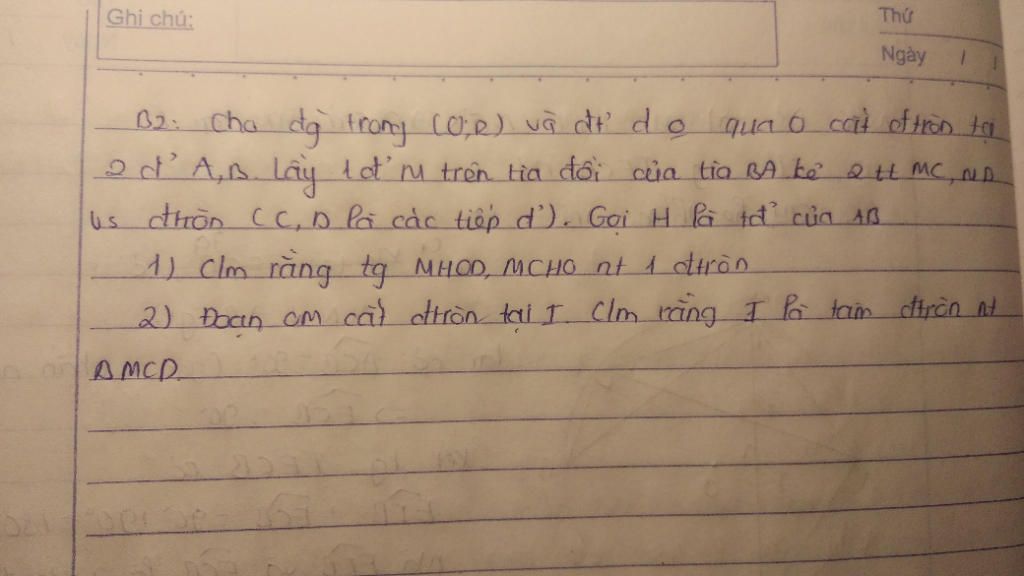 Ghi chú:
Thứ
Ngày / /
B2: Cho dg̀ trong (O;R) và đt' d o̲ qua O cắt đtròn tại
2 đ' A,B. Lấy 1 đ' M trên tia đối của tia BA kẻ 2 tt MC, MD
vs đtròn (C, D là các tiếp đ'). Gọi H là tđ' của AB
1) Clm rằng tg MHOD, MCHO nt 1 đtròn
2) Đoạn OM cắt đtròn tại I. Clm rằng I là tâm đtròn nt
Δ MCD.